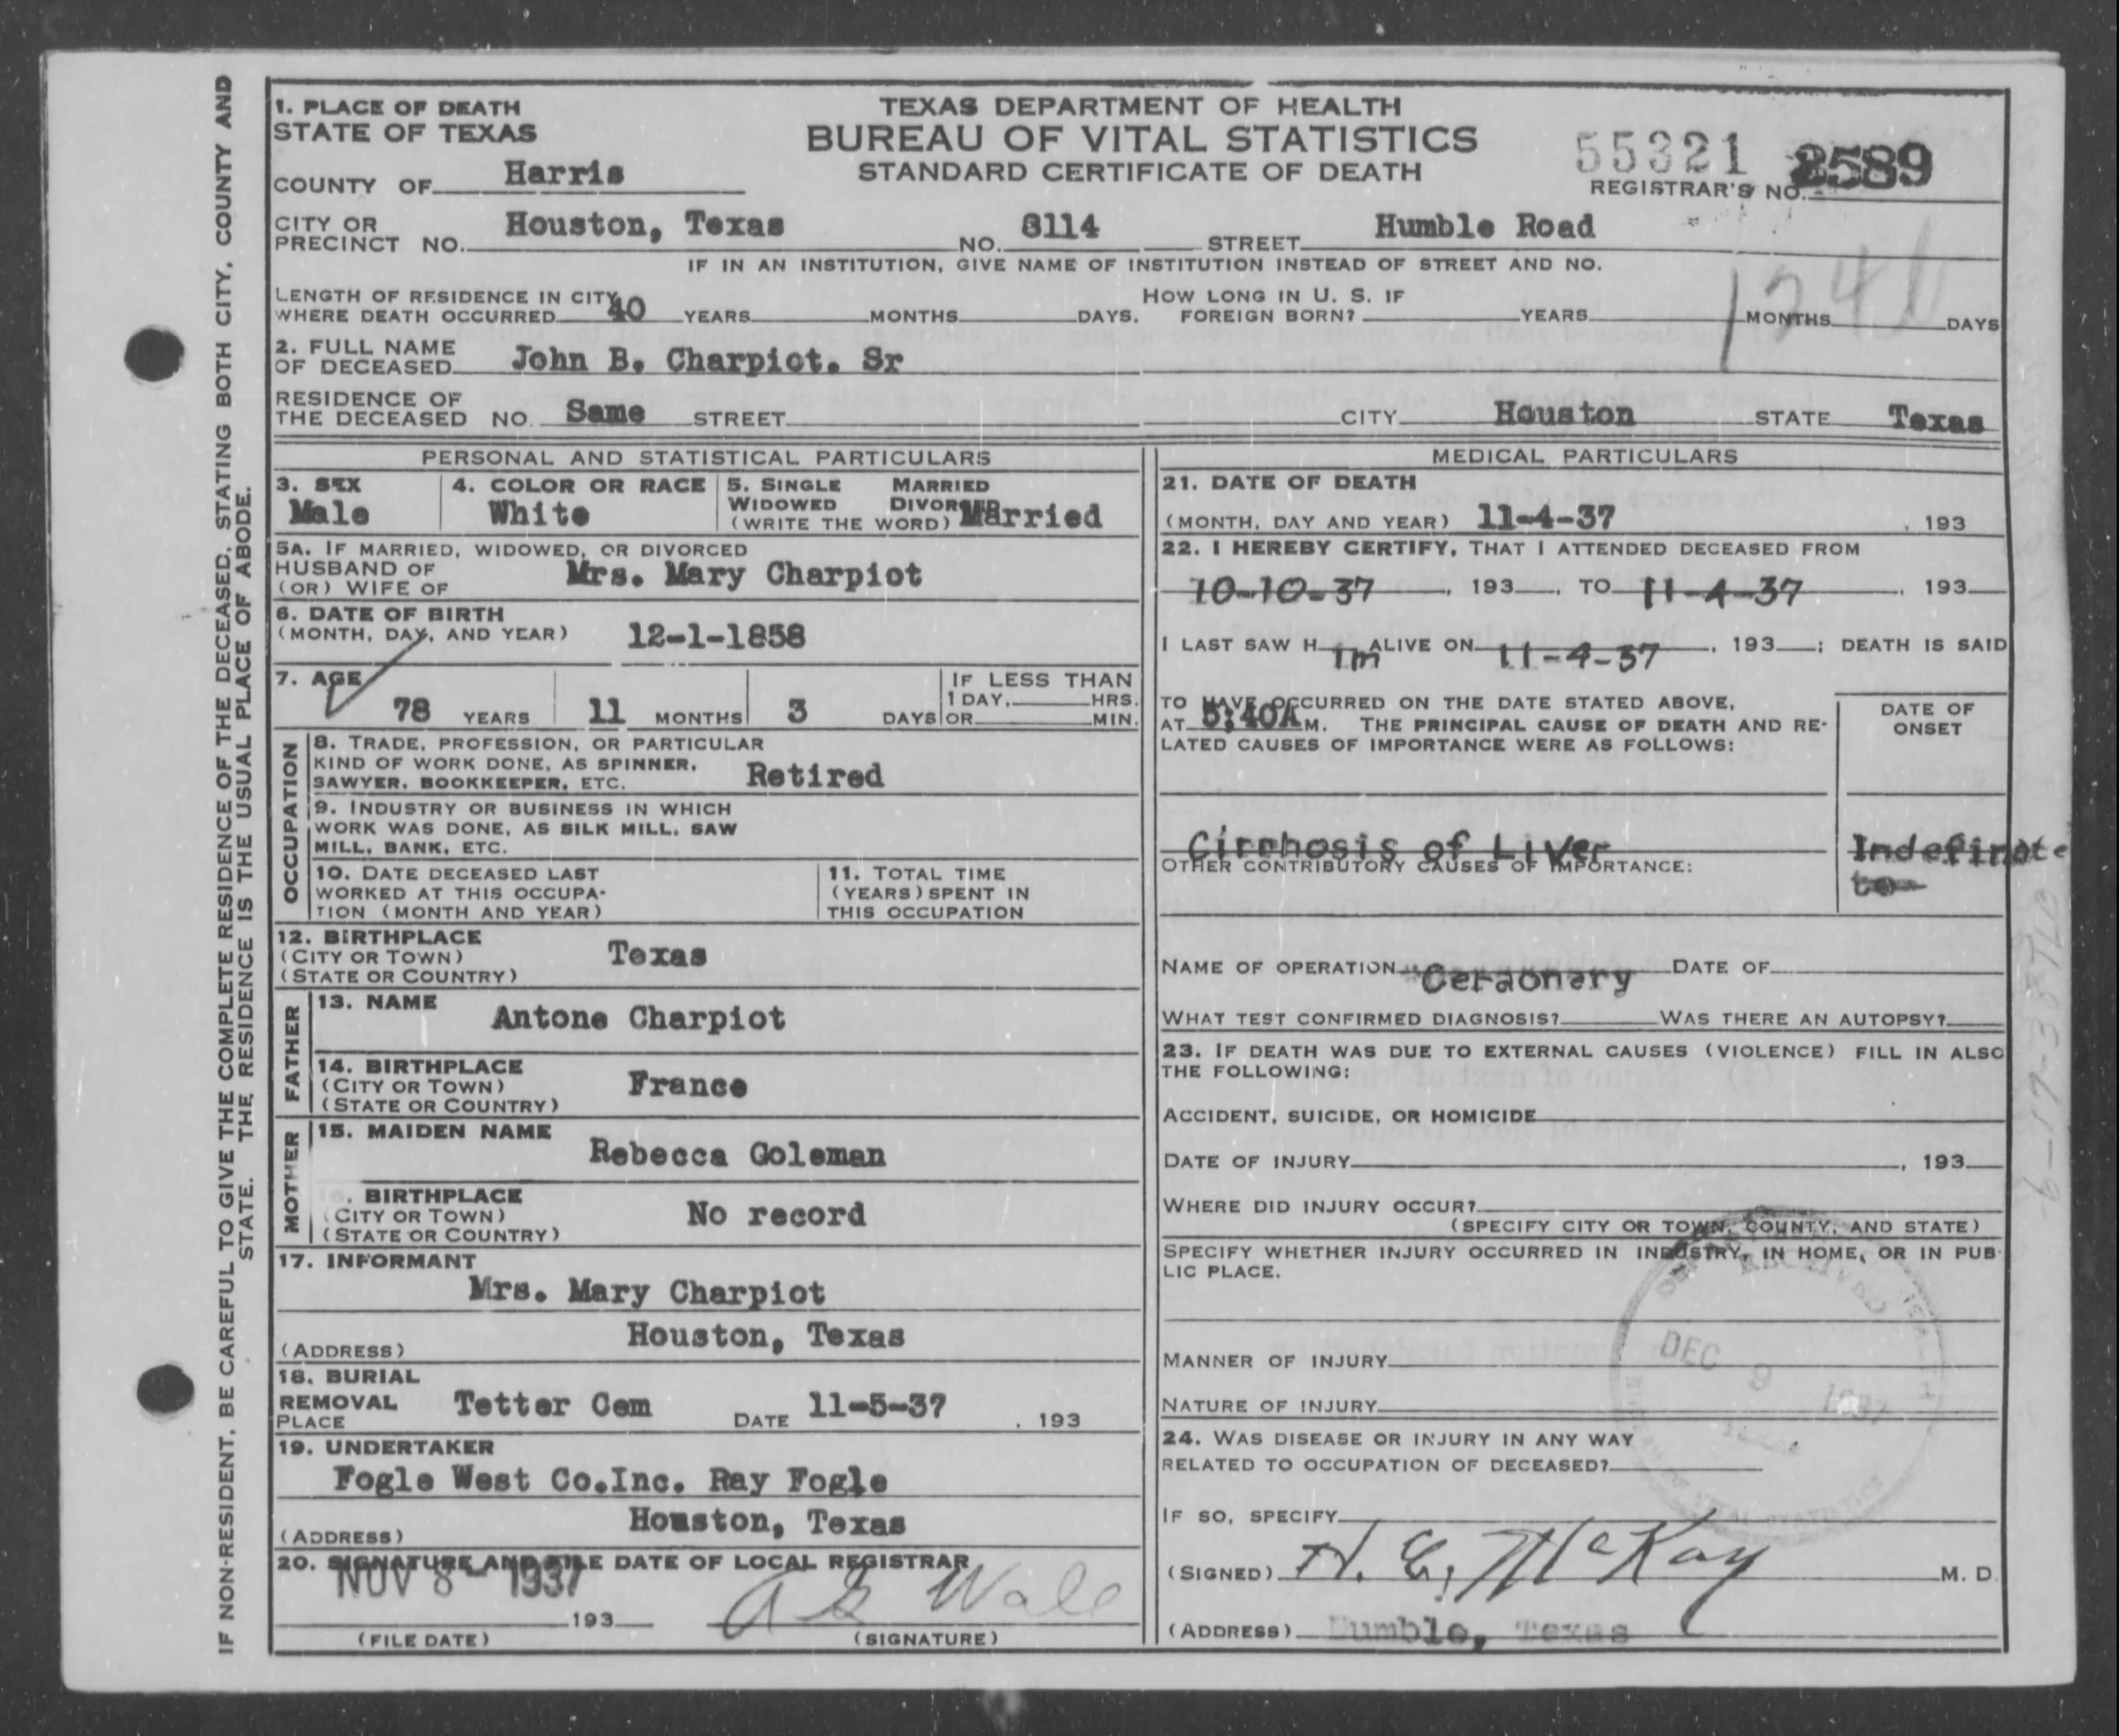 IF NON-RESIDENT, BE CAREFUL TO GIVE THE COMPLETE RESIDENCE OF THE DECEASED, STATING BOTH CITY, COUNTY AND
STATE. THE RESIDENCE IS THE USUAL PLACE OF ABODE.
1. PLACE OF DEATH
STATE OF TEXAS
COUNTY OF Harris
TEXAS DEPARTMENT OF HEALTH
BUREAU OF VITAL STATISTICS
STANDARD CERTIFICATE OF DEATH
55321 2589
REGISTRAR'S NO.
CITY OR
PRECINCT NO. Houston, Texas NO. 8114 STREET Humble Road
IF IN AN INSTITUTION, GIVE NAME OF INSTITUTION INSTEAD OF STREET AND NO.
LENGTH OF RESIDENCE IN CITY
WHERE DEATH OCCURRED 40 YEARS MONTHS DAYS.
HOW LONG IN U. S. IF
FOREIGN BORN? YEARS MONTHS DAYS
2. FULL NAME
OF DECEASED John B. Charpiot. Sr
RESIDENCE OF
THE DECEASED NO. Same STREET CITY Houston STATE Texas
PERSONAL AND STATISTICAL PARTICULARS
3. SEX
Male
4. COLOR OR RACE
White
5. SINGLE MARRIED
WIDOWED DIVORCED
(WRITE THE WORD) Married
5A. IF MARRIED, WIDOWED, OR DIVORCED
HUSBAND OF
(OR) WIFE OF Mrs. Mary Charpiot
6. DATE OF BIRTH
(MONTH, DAY, AND YEAR) 12-1-1858
7. AGE
78 YEARS 11 MONTHS 3 DAYS
IF LESS THAN
1 DAY, HRS.
OR MIN.
OCCUPATION
8. TRADE, PROFESSION, OR PARTICULAR
KIND OF WORK DONE, AS SPINNER,
SAWYER, BOOKKEEPER, ETC. Retired
9. INDUSTRY OR BUSINESS IN WHICH
WORK WAS DONE, AS SILK MILL, SAW
MILL, BANK, ETC.
10. DATE DECEASED LAST
WORKED AT THIS OCCUPA-
TION (MONTH AND YEAR)
11. TOTAL TIME
(YEARS) SPENT IN
THIS OCCUPATION
12. BIRTHPLACE
(CITY OR TOWN) Texas
(STATE OR COUNTRY)
FATHER
13. NAME
Antone Charpiot
14. BIRTHPLACE
(CITY OR TOWN) France
(STATE OR COUNTRY)
MOTHER
15. MAIDEN NAME
Rebecca Goleman
. BIRTHPLACE
(CITY OR TOWN) No record
(STATE OR COUNTRY)
17. INFORMANT
Mrs. Mary Charpiot
Houston, Texas
(ADDRESS)
18. BURIAL
REMOVAL Tetter Cem DATE 11-5-37 , 193
PLACE
19. UNDERTAKER
Fogle West Co.Inc. Ray Fogle
Houston, Texas
(ADDRESS)
20. SIGNATURE AND FILE DATE OF LOCAL REGISTRAR
NOV 8 - 1937
193
(FILE DATE) (SIGNATURE)
MEDICAL PARTICULARS
21. DATE OF DEATH
(MONTH, DAY AND YEAR) 11-4-37 , 193
22. I HEREBY CERTIFY, THAT I ATTENDED DECEASED FROM
10-10-37 , 193 , TO 11-4-37 , 193
I LAST SAW H im ALIVE ON 11-4-37 , 193 ; DEATH IS SAID
TO HAVE OCCURRED ON THE DATE STATED ABOVE,
AT 5:40A M. THE PRINCIPAL CAUSE OF DEATH AND RE-
LATED CAUSES OF IMPORTANCE WERE AS FOLLOWS:
DATE OF
ONSET
Cirrhosis of Liver
Indefinate
to
OTHER CONTRIBUTORY CAUSES OF IMPORTANCE:
NAME OF OPERATION Ceraonary DATE OF
WHAT TEST CONFIRMED DIAGNOSIS? WAS THERE AN AUTOPSY?
23. IF DEATH WAS DUE TO EXTERNAL CAUSES (VIOLENCE) FILL IN ALSO
THE FOLLOWING:
ACCIDENT, SUICIDE, OR HOMICIDE
DATE OF INJURY , 193
WHERE DID INJURY OCCUR?
(SPECIFY CITY OR TOWN, COUNTY, AND STATE)
SPECIFY WHETHER INJURY OCCURRED IN INDUSTRY, IN HOME, OR IN PUB-
LIC PLACE.
MANNER OF INJURY
NATURE OF INJURY
RECEIVED
DEC 9 1937
24. WAS DISEASE OR INJURY IN ANY WAY
RELATED TO OCCUPATION OF DECEASED?
IF SO, SPECIFY
(SIGNED) H. E. McKay M. D.
(ADDRESS) Humble, Texas